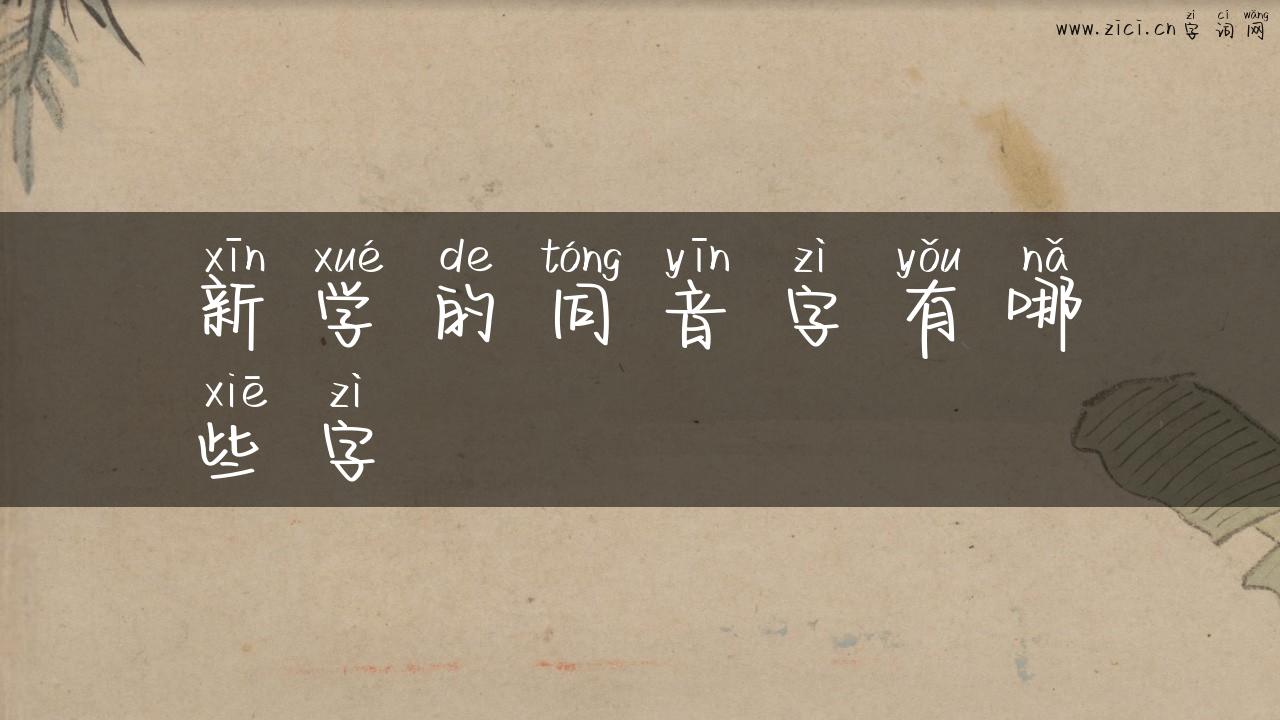 zì cí wǎng
www.zici.cn 字 词 网
xīn xué de tóng yīn zì yǒu nǎ
新 学 的 同 音 字 有 哪
xiē zì
些 字